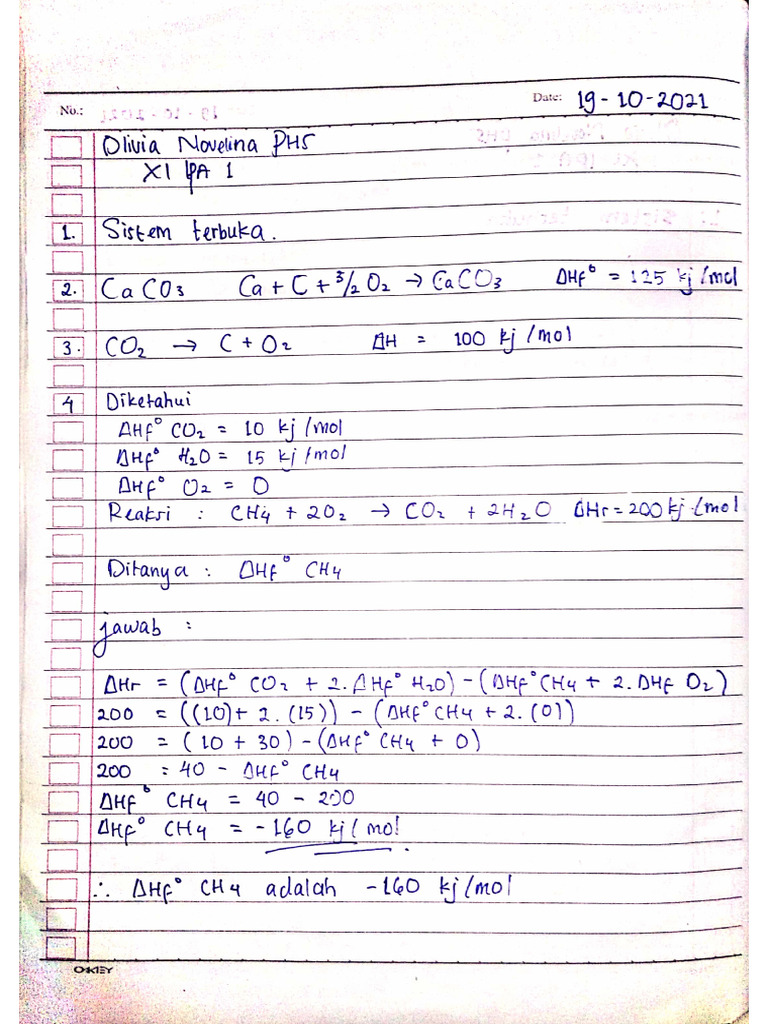 No.:
Date: 19-10-2021
Olivia Novelina PHS
XI IPA 1
1. Sistem terbuka.
2. CaCO3 Ca + C + 3/2 O2 → CaCO3 ΔHf° = 125 kj/mol
3. CO2 → C + O2 ΔH = 100 kj/mol
4 Diketahui
ΔHf° CO2 = 10 kj/mol
ΔHf° H2O = 15 kj/mol
ΔHf° O2 = 0
Reaksi : CH4 + 2O2 → CO2 + 2H2O ΔHr = 200 kj/mol
Ditanya : ΔHf° CH4
jawab :
ΔHr = (ΔHf° CO2 + 2. ΔHf° H2O) - (ΔHf° CH4 + 2. ΔHf O2)
200 = ((10) + 2. (15)) - (ΔHf° CH4 + 2. (0))
200 = (10 + 30) - (ΔHf° CH4 + 0)
200 = 40 - ΔHf° CH4
ΔHf° CH4 = 40 - 200
ΔHf° CH4 = -160 kj/mol.
∴ ΔHf° CH4 adalah -160 kj/mol
OKEY